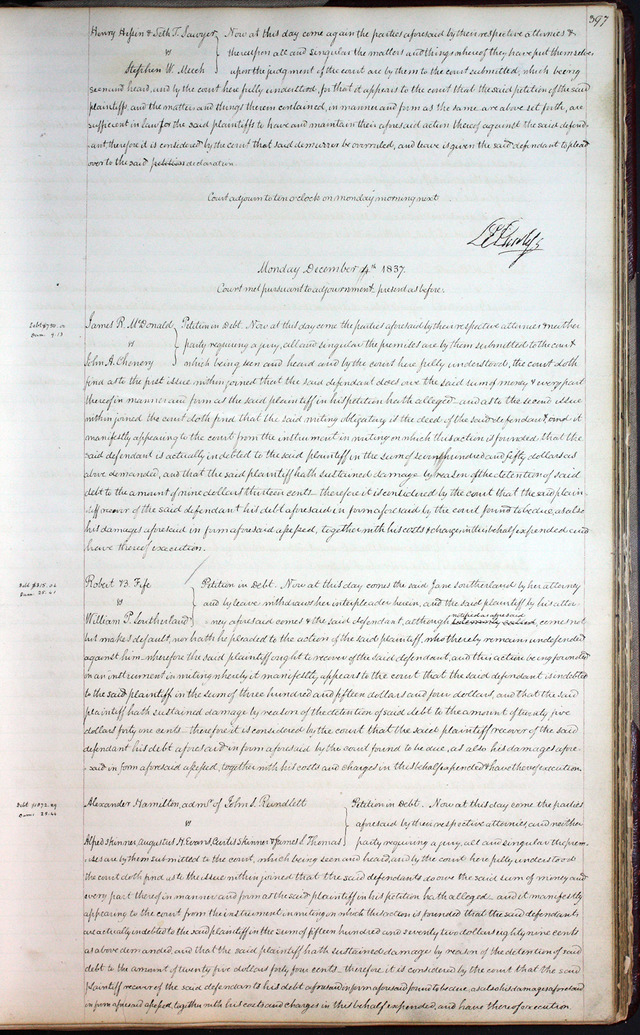 397
Henry Hessen & Seth T. Sawyer } Now at this day come again the parties aforesaid by their respective attornies &
vs thereupon all and singular the matters and things whereof they have put themselves
Stephen W. Meech upon the judgment of the court are by them to the court submitted, which being
seen and heard, and by the court here fully understood. for that it appears to the court that the said petition of the said
plaintiffs, and the matter and things therein contained, in manner and form as the same are above set forth, are
sufficient in law for the said plaintiffs to have and maintain their aforesaid action thereof against the said defend-
-ant, therefore it is considered by the court that said demurrer be overruled, and leave is given the said defendant to plead
over to the said petition declaration.
Court adjourn to ten o'clock on monday morning next
Monday December 4th 1837.
Court met pursuant to adjournment, present as before.
Debt $750.00
Dam. 9.13
James R. McDonald } Petition in Debt. Now at this day come the parties aforesaid by their respective attornies & neither
vs party requiring a jury, all and singular the premises are by them submitted to the court
John A. Chenery which being seen and heard and by the court here fully understood, the court doth
find as to the first issue within joined that the said defendant does owe the said sum of money & every part
thereof in manner and form as the said plaintiff in his petition hath alleged and as to the second issue
within joined the court doth find that the said writing obligatory is the deed of the said defendant, & and it
manifestly appearing to the court from the instrument in writing on which this action is founded, that the
said defendant is actually indebted to the said plaintiff in the sum of seven hundred and fifty dollars as
above demanded, and that the said plaintiff hath sustained damage by reason of the detention of said
debt to the amount of nine dollars thirteen cents therefore it is considered by the court that the said plain-
tiff recover of the said defendant his debt aforesaid in form aforesaid by the court found to be due, as also
his damages aforesaid in form aforesaid assessed, together with his costs & charges in this behalf expended and
have thereof execution.
Debt $315.04
Dam. 25.41
Robert B. Fife } Petition in Debt. Now at this day comes the said Jane Southerland by her attorney
vs and by leave withdraws her interpleader herein, and the said plaintiff by his attor-
William P. Southerland ney aforesaid comes & the said defendant, although notified as aforesaid comes not
but makes default, nor hath he pleaded to the action of the said plaintiff, who thereby remains undefended
against him. wherefore the said plaintiff ought to recover of the said defendant, and this action being founded
on an instrument in writing whereby it manifestly appears to the court that the said defendant is indebted
to the said plaintiff in the sum of three hundred and fifteen dollars and four dollars, and that the said
plaintiff hath sustained damage by reason of the detention of said debt to the amount of twenty five
dollars forty one cents therefore it is considered by the court that the said plaintiff recover of the said
defendant his debt aforesaid in form aforesaid by the court found to be due, as also his damages afore-
-said in form aforesaid assessed, together with his costs and charges in this behalf expended & have thereof execution
Debt $1572.89
Dam. 25.44
Alexander Hamilton, admr. of John S. Rundlett } Petition in Debt. Now at this day come the parties
vs aforesaid by their respective attornies, and neither
Alfred Skinner, Augustus H. Evans, Curtis Skinner & James S. Thomas party requiring a jury, all and singular the prem-
ises are by them submitted to the court, which being seen and heard, and by the court here fully understood
the court doth find as to the issue within joined that the said defendants do owe the said sum of money and
every part thereof in manner and form as the said plaintiff in his petition hath alleged. and it manifestly
appearing to the court from the instrument in writing on which this action is founded that the said defendants
are actually indebted to the said plaintiff in the sum of fifteen hundred and seventy two dollars eighty nine cents
as above demanded, and that the said plaintiff hath sustained damage by reason of the detention of said
debt to the amount of twenty five dollars forty four cents. therefore it is considered by the court that the said
plaintiff recover of the said defendants his debt aforesaid in form aforesaid found to be due, as also his damages aforesaid
in form aforesaid assessed, together with his costs and charges in this behalf expended, and have thereof execution